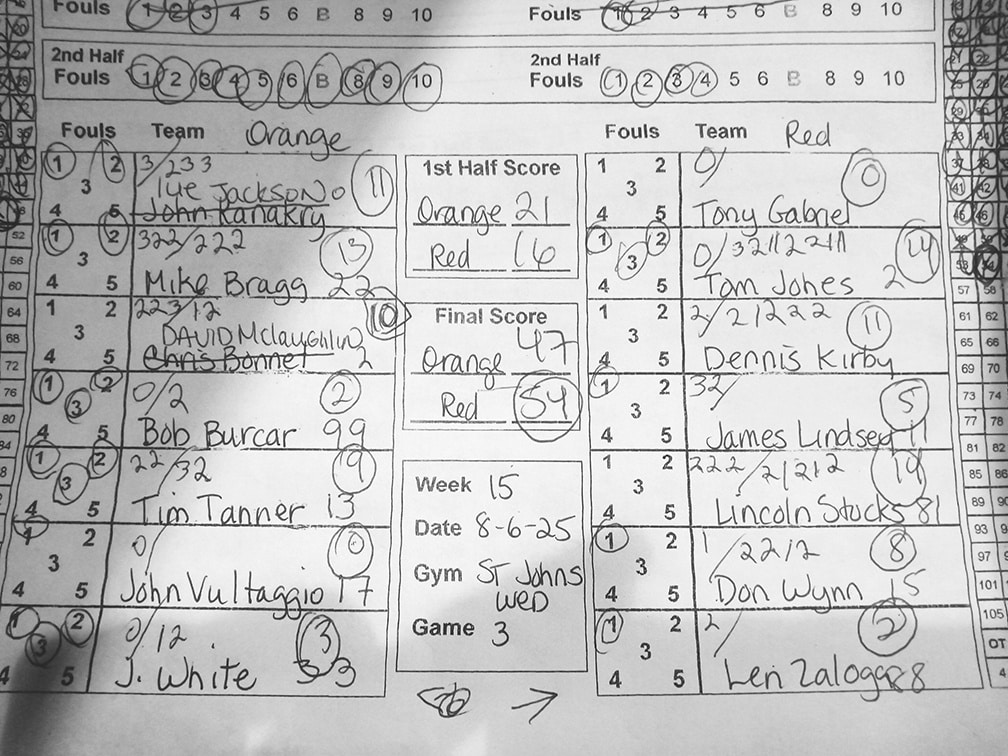 Fouls 1 2 3 4 5 6 B 8 9 10
Fouls 1 2 3 4 5 6 B 8 9 10
2nd Half
Fouls 1 2 3 4 5 6 B 8 9 10
2nd Half
Fouls 1 2 3 4 5 6 B 8 9 10
Fouls Team Orange
1 2 3/233
3 Jackson 0 11
4 5 John Kanakry
1 2 322/222 13
3
4 5 Mike Bragg 22
1 2 223/12 10
3 DAVID Mclaughlin
4 5 Chris Bonnet 2
1 2 0/2 2
3
4 5 Bob Burcar 99
1 2 22/32 9
3
4 5 Tim Tanner 13
1 2 0/ 0
3
4 5 John Vultaggio 17
1 2 0/12 3
3
4 5 J. White 33
1st Half Score
Orange 21
Red 16
Final Score
Orange 47
Red 54
Week 15
Date 8-6-25
Gym ST Johns
WED
Game 3
Fouls Team Red
1 2 0/ 0
3
4 5 Tony Gabriel
1 2 0/
3
4 5 Tom Jones 2
1 2 2/21222 11
3
4 5 Dennis Kirby
1 2 32/ 5
3
4 5 James Lindsey 11
1 2 222/21212
3
4 5 Lincoln Stocks 81
1 2 1/2212 8
3
4 5 Don Wynn 15
1 2 2/ 2
3
4 5 Len Zaloga
52
56
60
64
68
72
76
80
57 58
61 62
65 66
69 70
73 74
77 78
81 82
85 86
89
93
97
101
105
OT
4